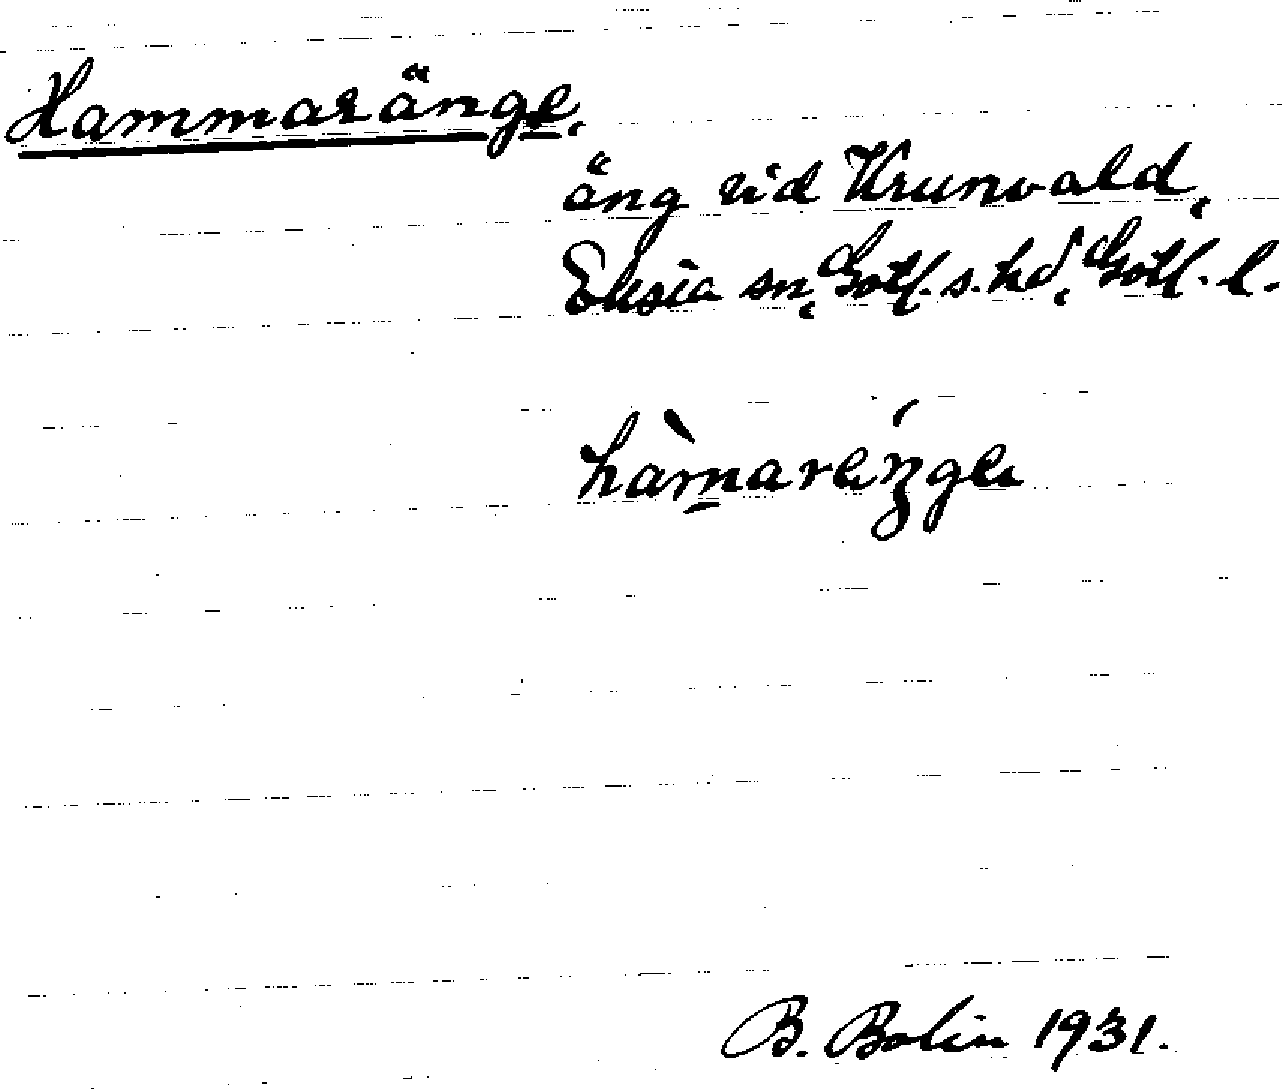 Hammaränge.
äng vid Krunvald,
Eksta sn, Gotl. s. hd, Gotl. l.
hàmaréŋge
B. Bolin 1931.